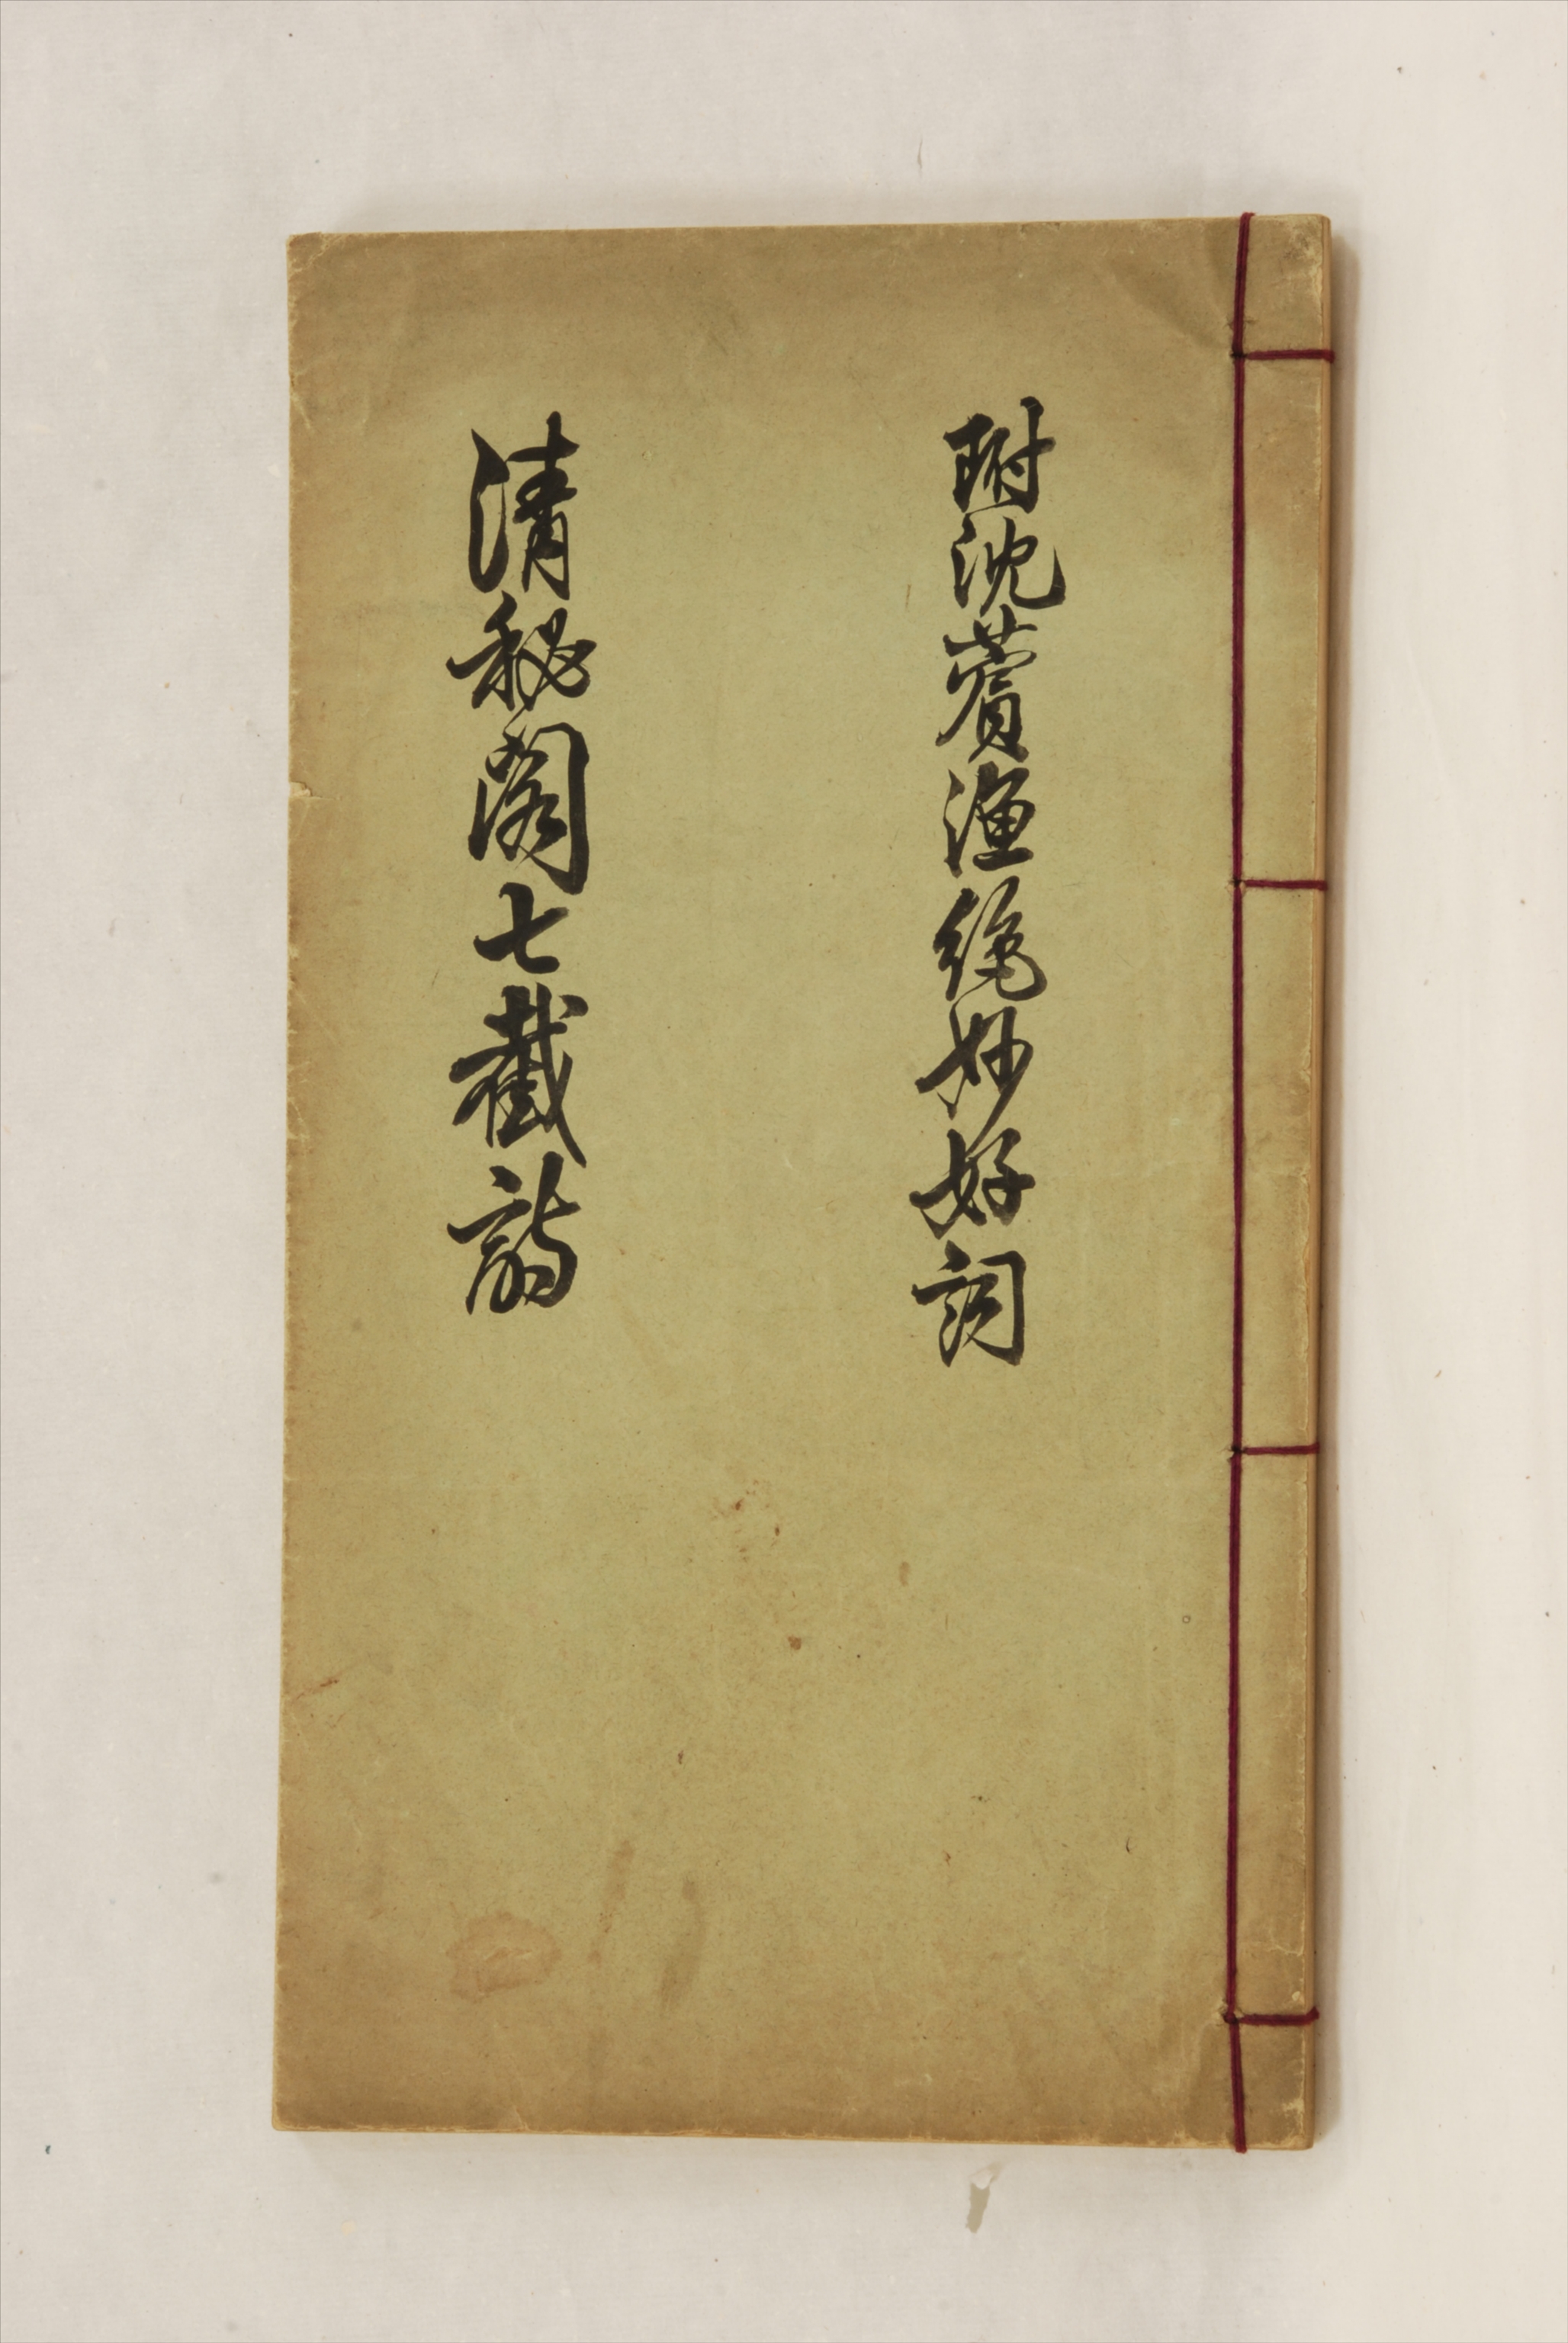 附沈薲漁絶妙好詞
清秘閣七截詩